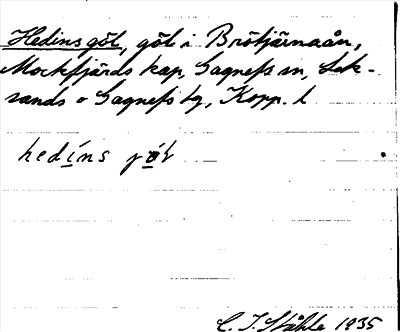 Hedinsgöl, göl i Brötjärnaån,
Mockfjärds kap, Gagnefs sn, Lek-
sands o Gagnefs tg, Kopp. l
hedíns
C. I. Ståhle 1935